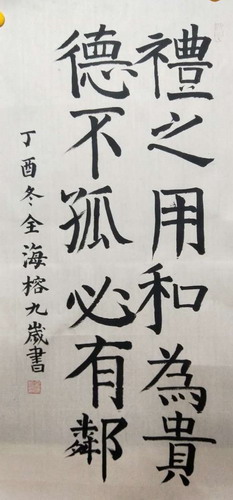 禮之用和為貴
德不孤必有鄰
丁酉冬全海榕九歲書